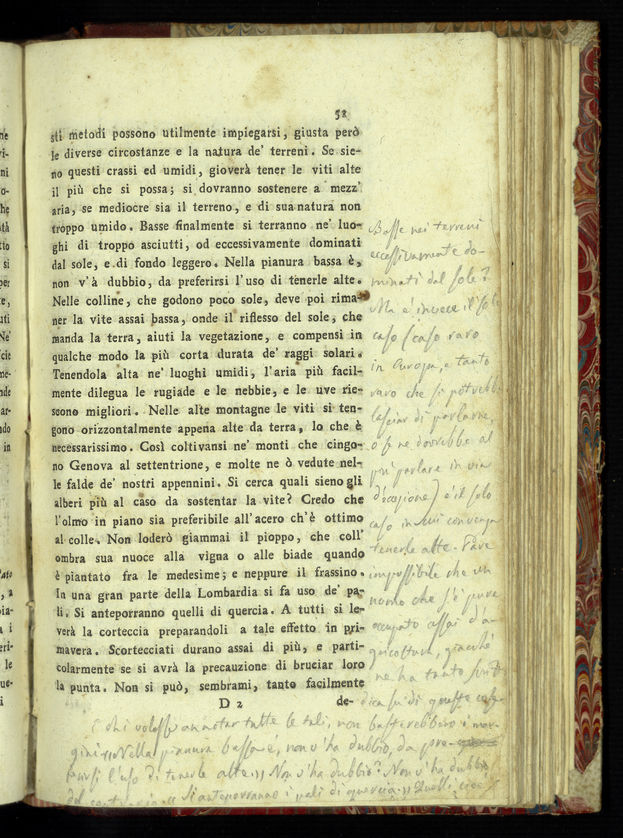 58
sti metodi possono utilmente impiegarsi, giusta però
le diverse circostanze e la natura de' terreni. Se sie-
no questi crassi ed umidi, gioverà tener le viti alte
il più che si possa; si dovranno sostenere a mezz'
aria, se mediocre sia il terreno, e di sua natura non
troppo umido. Basse finalmente si terranno ne' luo-
ghi di troppo asciutti, od eccessivamente dominati
dal sole, e di fondo leggero. Nella pianura bassa è,
non v'à dubbio, da preferirsi l'uso di tenerle alte.
Nelle colline, che godono poco sole, deve poi rima-
ner la vite assai bassa, onde il riflesso del sole, che
manda la terra, aiuti la vegetazione, e compensi in
qualche modo la più corta durata de' raggi solari.
Tenendola alta ne' luoghi umidi, l'aria più facil-
mente dilegua le rugiade e le nebbie, e le uve rie-
scono migliori. Nelle alte montagne le viti si ten-
gono orizzontalmente appena alte da terra, lo che è
necessarissimo. Così coltivansi ne' monti che cingo-
no Genova al settentrione, e molte ne ò vedute nel-
le falde de' nostri appennini. Si cerca quali sieno gli
alberi più al caso da sostentar la vite? Credo che
l'olmo in piano sia preferibile all'acero ch'è ottimo
al colle. Non loderò giammai il pioppo, che coll'
ombra sua nuoce alla vigna o alle biade quando
è piantato fra le medesime; e neppure il frassino.
In una gran parte della Lombardia si fa uso de' pa-
li. Si anteporranno quelli di quercia. A tutti si le-
verà la corteccia preparandoli a tale effetto in pri-
mavera. Scortecciati durano assai di più, e parti-
colarmente se si avrà la precauzione di bruciar loro
la punta. Non si può, sembrami, tanto facilmente
D 2 de-
Basse nei terreni
eccessivamente do-
minati dal sole?
Ma è invece il sol
caso (caso raro
in Europa, e tanto
raro che si potrebb
lasciar di parlarne,
o se ne dovrebbe al
più parlare in via
d'eccezione) è il solo
caso in cui convenga
tenerle alte. Pare
impossibile che un
uomo che s'è pure
occupato assai d'a-
gricoltura, giacché
ne ha tanto scritt
dica su di queste cose
E chi volesse annotar tutte le tali, non basterebbero i mar-
gini. "Nella pianura bassa è, non v'ha dubbio, da pre-
ferirsi l'uso di tenerle alte" Non v'ha dubbio? Non v'ha dubbio
del contrario. "Si anteporranno i pali di quercia" Quelli cioè